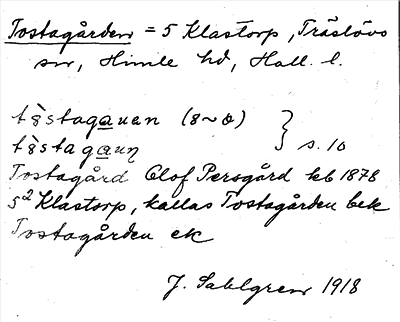 Tostagården = 5 Klastorp, Träslövs
sn, Himle hd, Hall. l.
tȣ̀stagauen (8~o) } s. 10
tȣ̀stagaun
Tostagård Olof Persgård kb 1878
5² Klastorp, kallas Tostagården bek
Tostagården ek
J. Sahlgren 1918